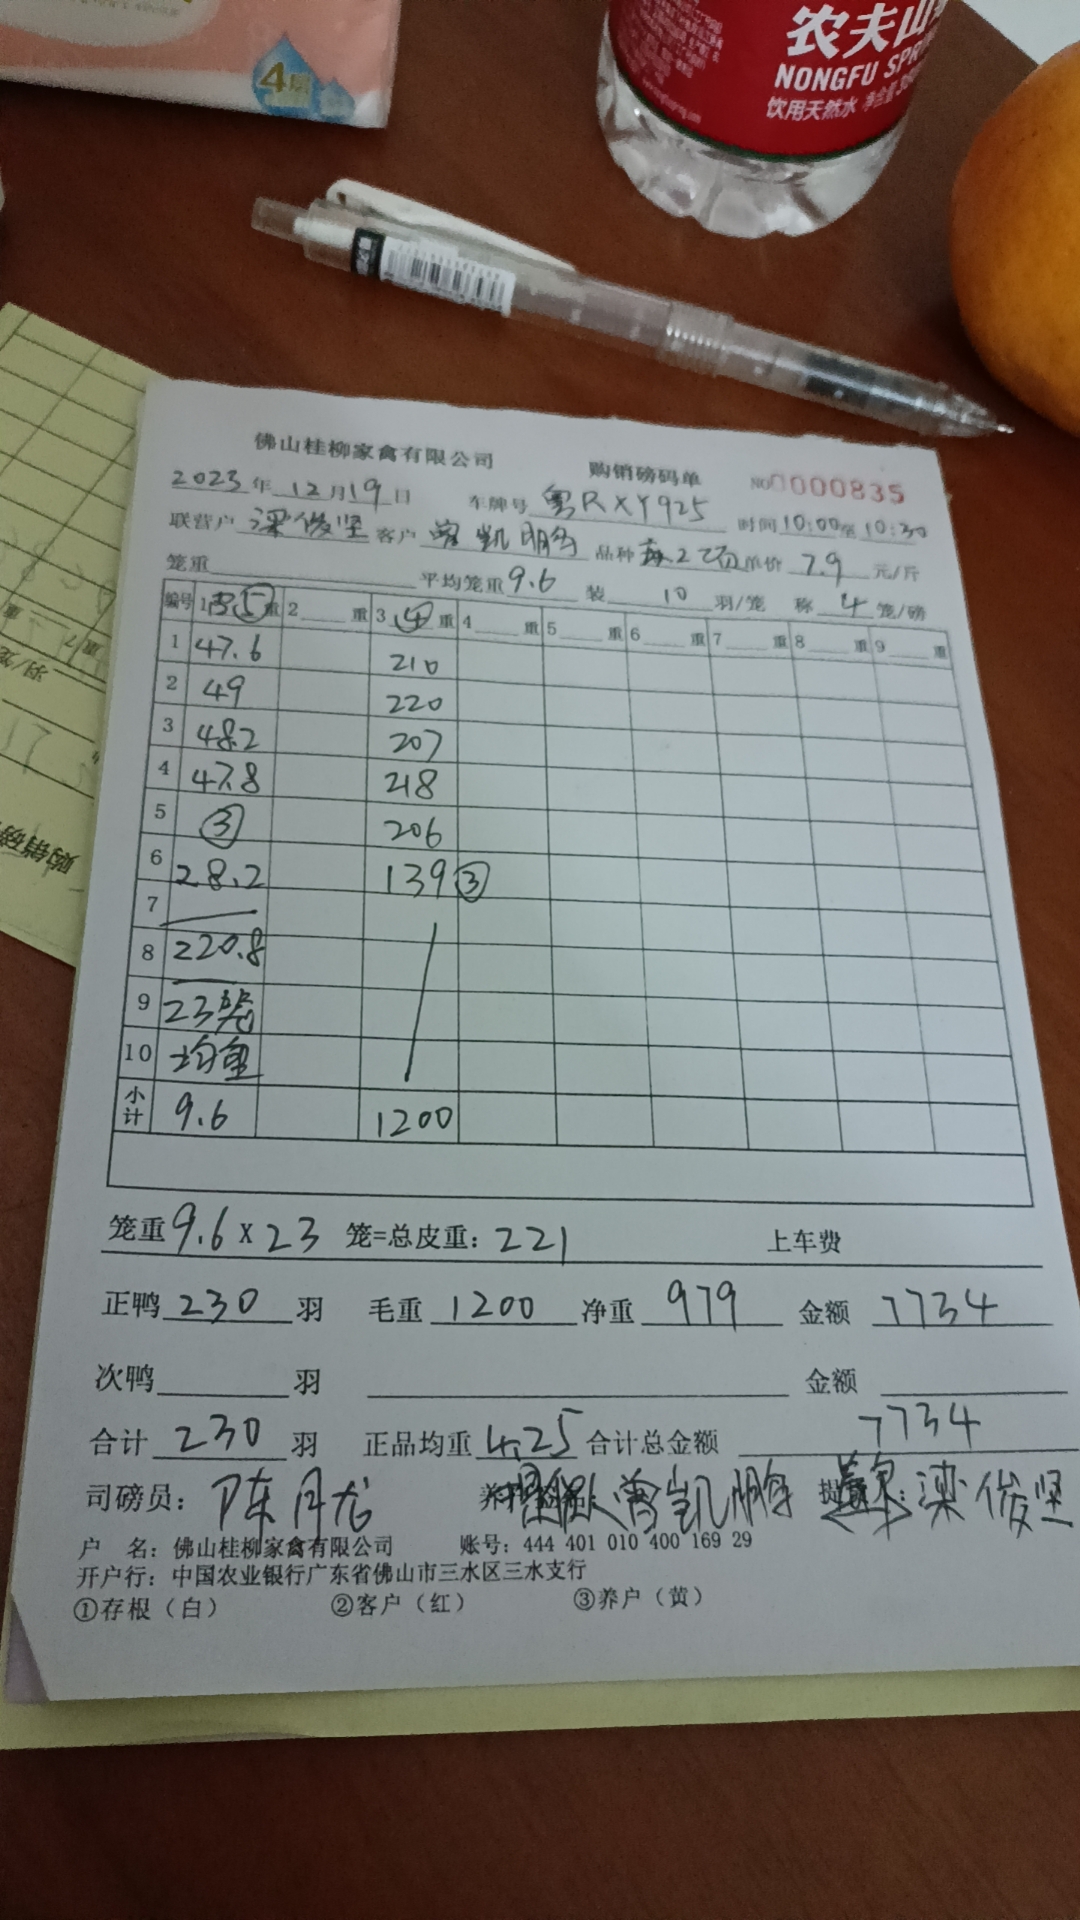 4层
农夫山
NONGFU SPR
饮用天然水 净含量
佛山桂柳家禽有限公司 购销磅码单 NO 0000835
2023年12月19日 车牌号 粤RXY925 时间10:00至10:30
联营户 梁俊坚 客户 曾凯鹏 品种 单价 7.9 元/斤
笼重 平均笼重9.6 装 10 羽/笼 称 4 笼/磅
编号 1 ⑤重 2 重 3 ④重 4 重 5 重 6 重 7 重 8 重 9 重
1 47.6 210
2 49 220
3 48.2 207
4 47.8 218
5 ③ 206
6 28.2 139③
7
8 220.8
9 23笼
10 均重
小计 9.6 1200
笼重9.6x23 笼=总皮重：221 上车费
正鸭 230 羽 毛重 1200 净重 979 金额 7734
次鸭 羽 金额
合计 230 羽 正品均重 4.25 合计总金额 7734
司磅员：陈月龙 曾凯鹏 梁俊坚
户 名：佛山桂柳家禽有限公司 账号：444 401 010 400 169 29
开户行：中国农业银行广东省佛山市三水区三水支行
①存根（白） ②客户（红） ③养户（黄）
购销磅